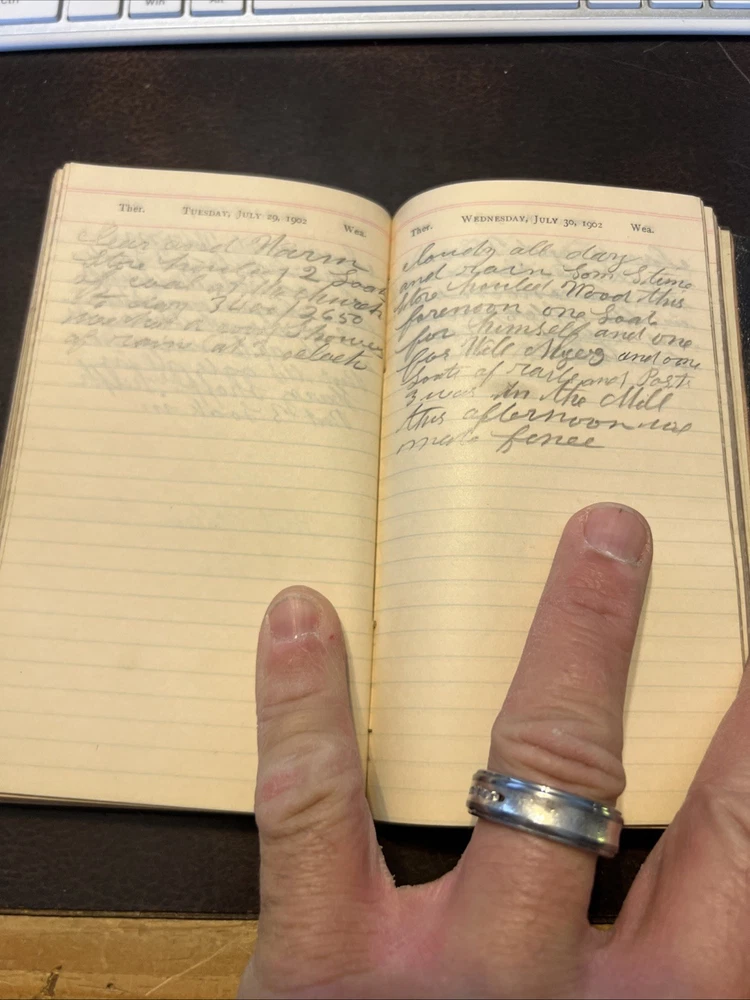 Ctrl
Win
Alt
Ther. Tuesday, July 29, 1902 Wea.
clear and Warm
Store hauled 2 Load
of coal
3400 / 2650
Shower
of rain at 3 oclock
Ther. Wednesday, July 30, 1902 Wea.
cloudy all day
and rain Som Stime
Store houled Wood this
forenoon one Load
for himself and one
for Will Myers and one
Loade of rails and Posts
3 was in the Mill
this afternoon
made fence